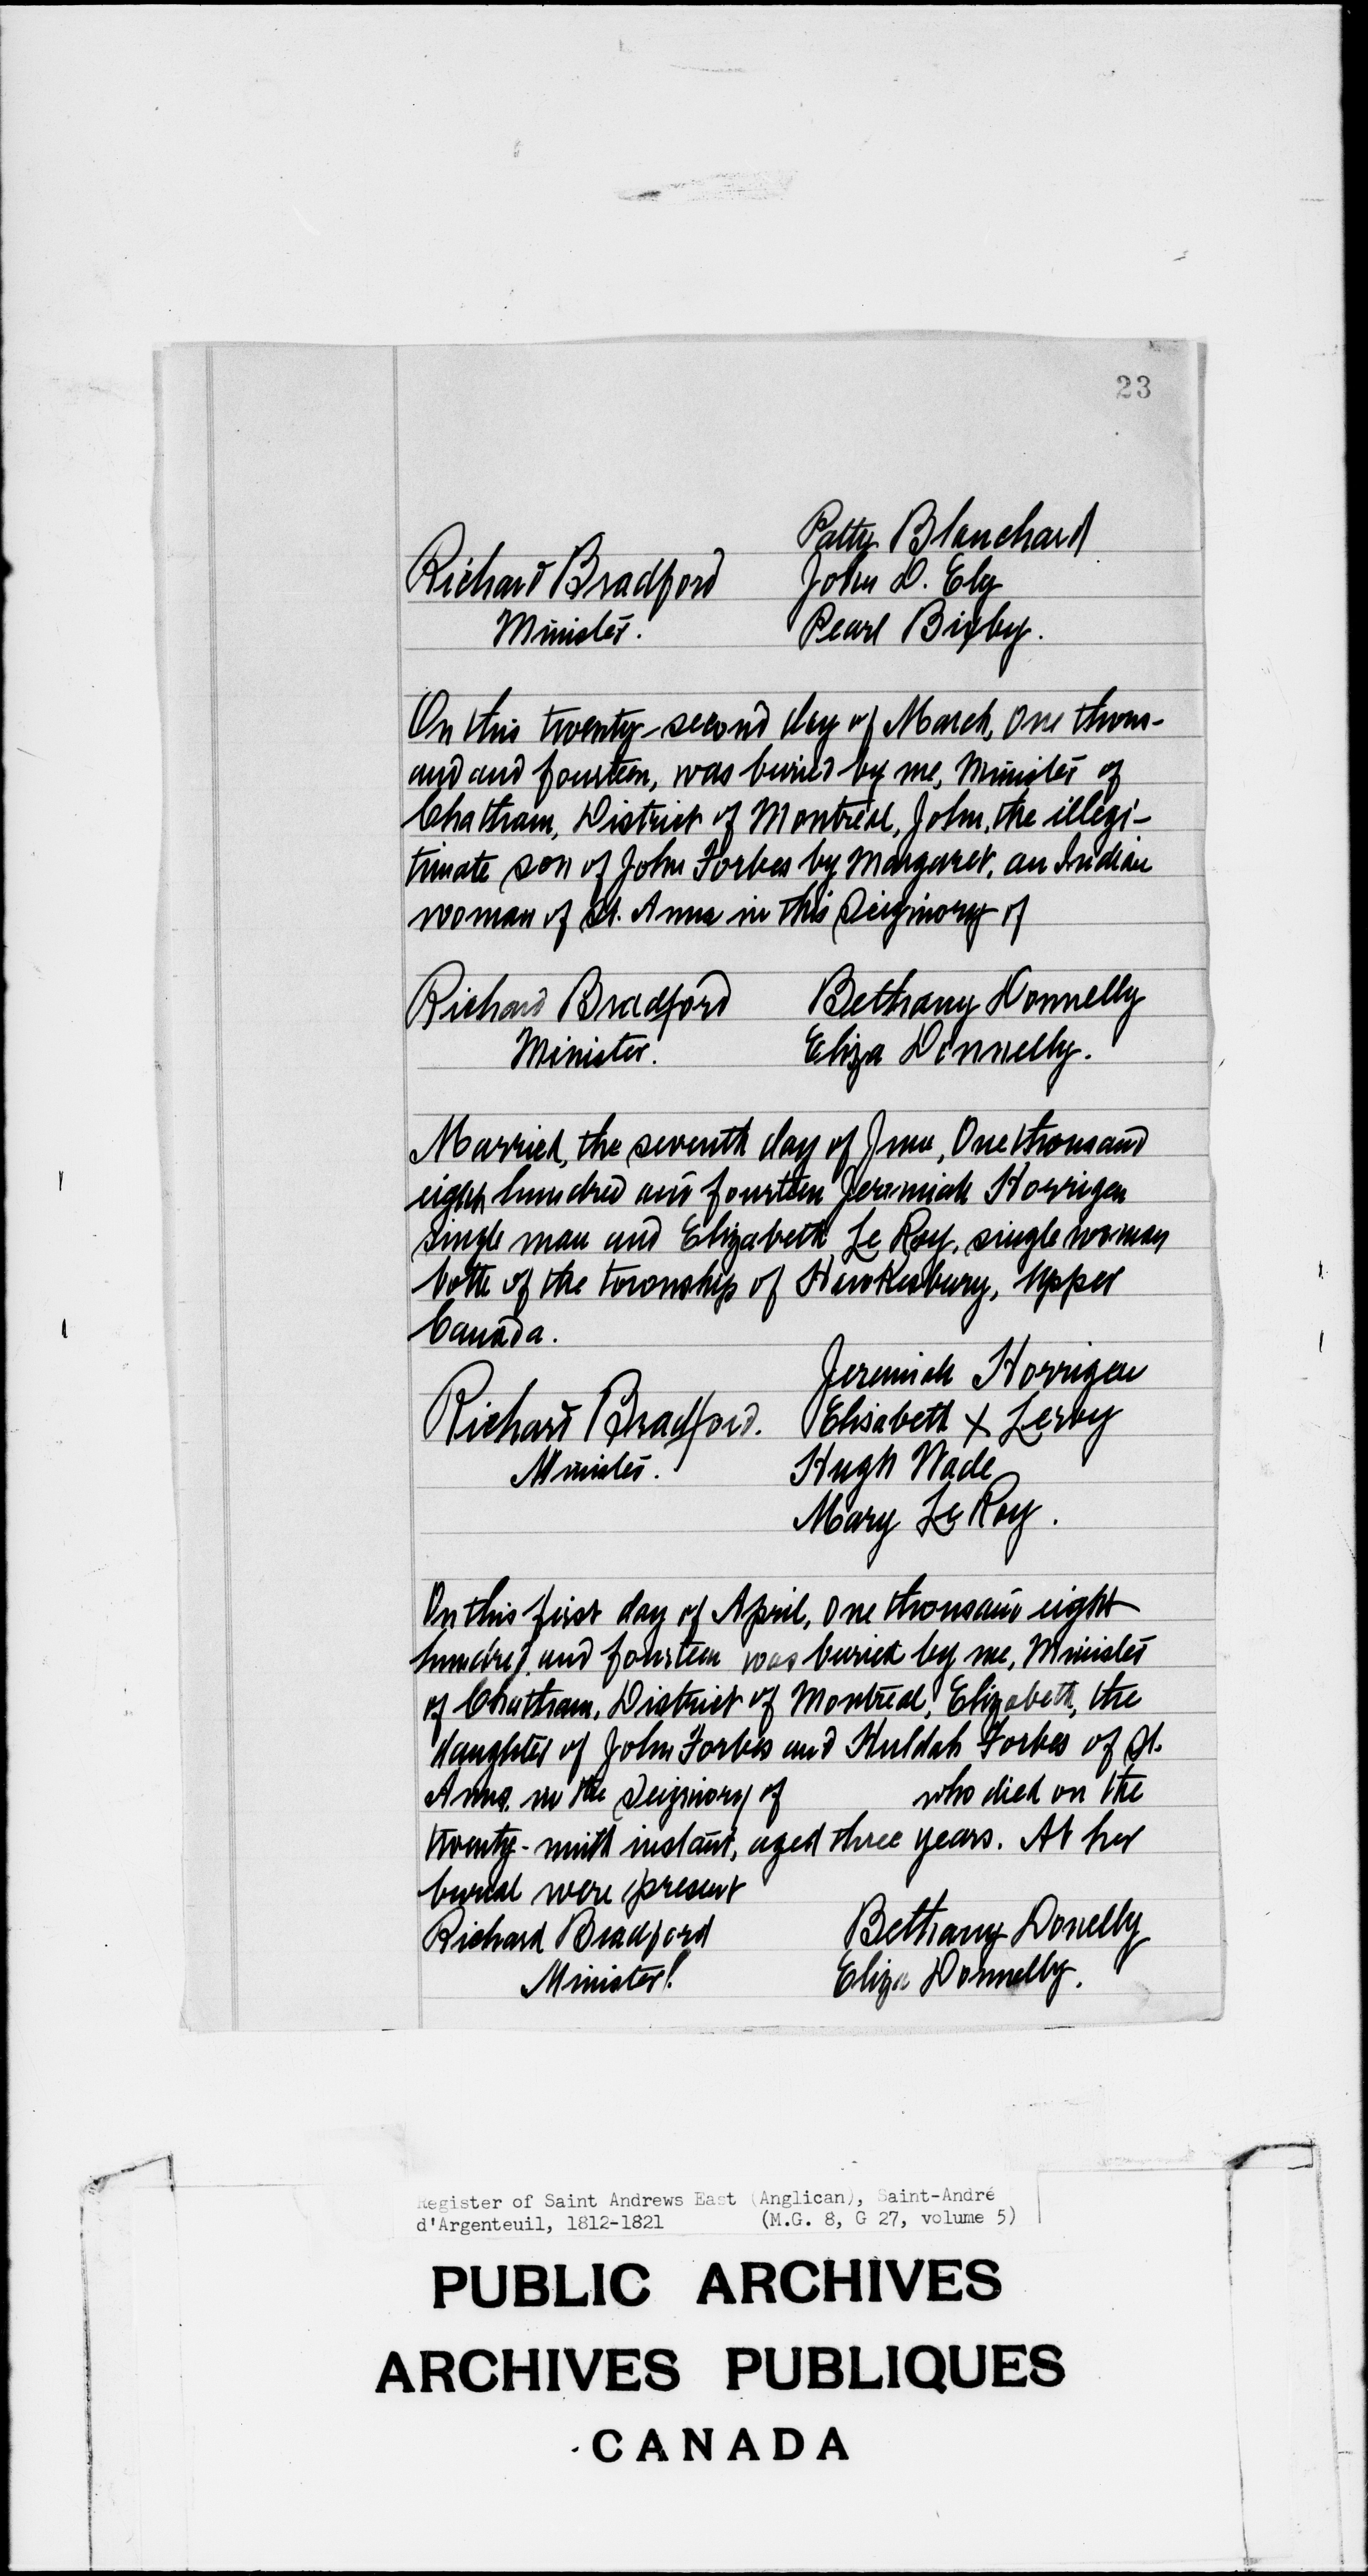 23
Patty Blanchard
Richard Bradford John D. Ely
Minister. Pearl Bixby.
On this twenty-second day of March, One thous-
and and fourteen, was buried by me, Minister of
Chatham, District of Montreal, John, the illegi-
timate son of John Forbes by Margaret, an Indian
woman of St. Anne in this Seiginory of
Richard Bradford Bethany Donnelly
Minister. Eliza Donnelly.
Married, the seventh day of June, One thousand
eight hundred and fourteen Jeremiah Horrigan
single man and Elizabeth Le Roy, single woman
both of the township of Hawkesbury, Upper
Canada.
Jeremiah Horrigan
Richard Bradford. Elisabeth X Leroy
Minister. Hugh Wade
Mary Le Roy.
On this first day of April, One thousand eight
hundred and fourteen was buried by me, Minister
of Chatham, District of Montreal, Elizabeth, the
daughter of John Forbes and Huldah Forbes of St.
Anns. in the Seiginory of who died on the
twenty-ninth instant, aged three years. At her
burial were present
Richard Bradford Bethany Donelly
Minister. Eliza Donnelly.
Register of Saint Andrews East (Anglican), Saint-André
d'Argenteuil, 1812-1821 (M.G. 8, G 27, volume 5)
PUBLIC ARCHIVES
ARCHIVES PUBLIQUES
CANADA